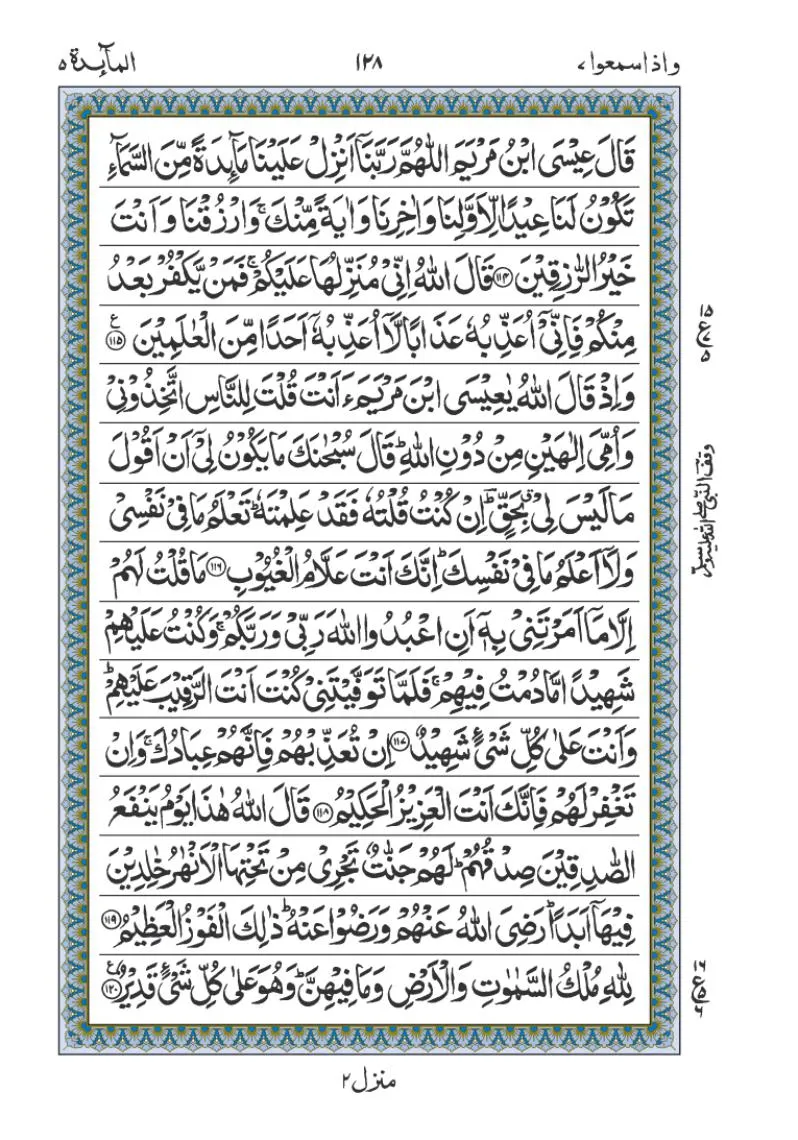 واذا سمعوا ۷ ۱۲۸ المآئدة ۵
قَالَ عِیْسَی ابْنُ مَرْیَمَ اللّٰهُمَّ رَبَّنَاۤ اَنْزِلْ عَلَیْنَا مَآىِٕدَةً مِّنَ السَّمَآءِ
تَكُوْنُ لَنَا عِیْدًا لِّاَوَّلِنَا وَ اٰخِرِنَا وَ اٰیَةً مِّنْكَ ۚ وَ ارْزُقْنَا وَ اَنْتَ
خَیْرُ الرّٰزِقِیْنَ ﴿۱۱۴﴾ قَالَ اللّٰهُ اِنِّیْ مُنَزِّلُهَا عَلَیْكُمْ ۚ فَمَنْ یَّكْفُرْ بَعْدُ
مِنْكُمْ فَاِنِّیْۤ اُعَذِّبُهٗ عَذَابًا لَّاۤ اُعَذِّبُهٗۤ اَحَدًا مِّنَ الْعٰلَمِیْنَ ﴿۱۱۵﴾ ع
وَ اِذْ قَالَ اللّٰهُ یٰعِیْسَی ابْنَ مَرْیَمَ ءَاَنْتَ قُلْتَ لِلنَّاسِ اتَّخِذُوْنِیْ
وَ اُمِّیَ اِلٰهَیْنِ مِنْ دُوْنِ اللّٰهِ ؕ قَالَ سُبْحٰنَكَ مَا یَكُوْنُ لِیْۤ اَنْ اَقُوْلَ
مَا لَیْسَ لِیْ ۗ بِحَقٍّ ؔؕ اِنْ كُنْتُ قُلْتُهٗ فَقَدْ عَلِمْتَهٗ ؕ تَعْلَمُ مَا فِیْ نَفْسِیْ
وَ لَاۤ اَعْلَمُ مَا فِیْ نَفْسِكَ ؕ اِنَّكَ اَنْتَ عَلَّامُ الْغُیُوْبِ ﴿۱۱۶﴾ مَا قُلْتُ لَهُمْ
اِلَّا مَاۤ اَمَرْتَنِیْ بِهٖۤ اَنِ اعْبُدُوا اللّٰهَ رَبِّیْ وَ رَبَّكُمْ ۚ وَ كُنْتُ عَلَیْهِمْ
شَهِیْدًا مَّا دُمْتُ فِیْهِمْ ۚ فَلَمَّا تَوَفَّیْتَنِیْ كُنْتَ اَنْتَ الرَّقِیْبَ عَلَیْهِمْ ؕ
وَ اَنْتَ عَلٰی كُلِّ شَیْءٍ شَهِیْدٌ ﴿۱۱۷﴾ اِنْ تُعَذِّبْهُمْ فَاِنَّهُمْ عِبَادُكَ ۚ وَ اِنْ
تَغْفِرْ لَهُمْ فَاِنَّكَ اَنْتَ الْعَزِیْزُ الْحَكِیْمُ ﴿۱۱۸﴾ قَالَ اللّٰهُ هٰذَا یَوْمُ یَنْفَعُ
الصّٰدِقِیْنَ صِدْقُهُمْ ؕ لَهُمْ جَنّٰتٌ تَجْرِیْ مِنْ تَحْتِهَا الْاَنْهٰرُ خٰلِدِیْنَ
فِیْهَاۤ اَبَدًا ؕ رَضِیَ اللّٰهُ عَنْهُمْ وَ رَضُوْا عَنْهُ ؕ ذٰلِكَ الْفَوْزُ الْعَظِیْمُ ﴿۱۱۹﴾
لِلّٰهِ مُلْكُ السَّمٰوٰتِ وَ الْاَرْضِ وَ مَا فِیْهِنَّ ؕ وَ هُوَ عَلٰی كُلِّ شَیْءٍ قَدِیْرٌ ﴿۱۲۰﴾ ع
۱۵ ع ۵
وقف النبی صلی اللہ علیہ وسلم
ع ۶
منزل ۲